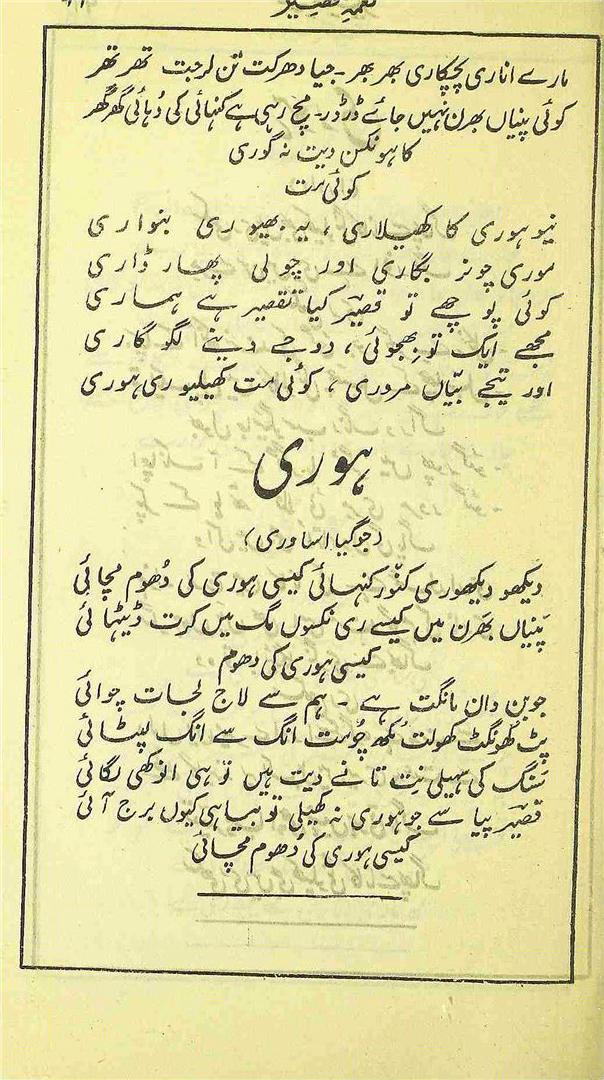 مارے اناری پچپکاری بھر بھر۔ جیا دھرکت تن لرجت تھر تھر
کوئی پنیاں بھرن نہیں جائے ڈر ڈر۔ مچ رہی ہے کنہائی کی دُہائی گھر گھر
کاہو نکسن دیت نہ گوری
کوئی مت
نیو ہوری کا کھیلاری ، یہ بھیو ری بنواری
موری چونر بگاری اور چولی پھار ڈاری
کوئی پوچھے تو قصیرؔ کیا تقصیر ہے ہماری
مجھے ایک تو بھجوئی ، دوجے دینے لگو گاری
اور تیجے بیّاں مروری ، کوئی مت کھیلیو ری ہوری
ہوری
(جوگیا اساوری)
دیکھو دیکھوری کنور کنہائی کیسی ہوری کی دُھوم مچائی
پنیاں بھَرن میں کیسے ری نکسوں مگ میں کرت ڈیٹھائی
کیسی ہوری کی دھوم
جوبن دان مانگت ہے ۔ ہم سے لاج لجات چوائی
پٹ گھونگٹ کھولت مُکھ چُومت انگ سے انگ لپٹائی
سَنگ کی سہیلی نِت تانے دیت ہیں تو ہی انوکھی لگائی
قصیرؔ پیا سے جو ہوری نہ کھیلی تو بیاہی کیوں برج آئی
کیسی ہوری کی دُھوم مچائی